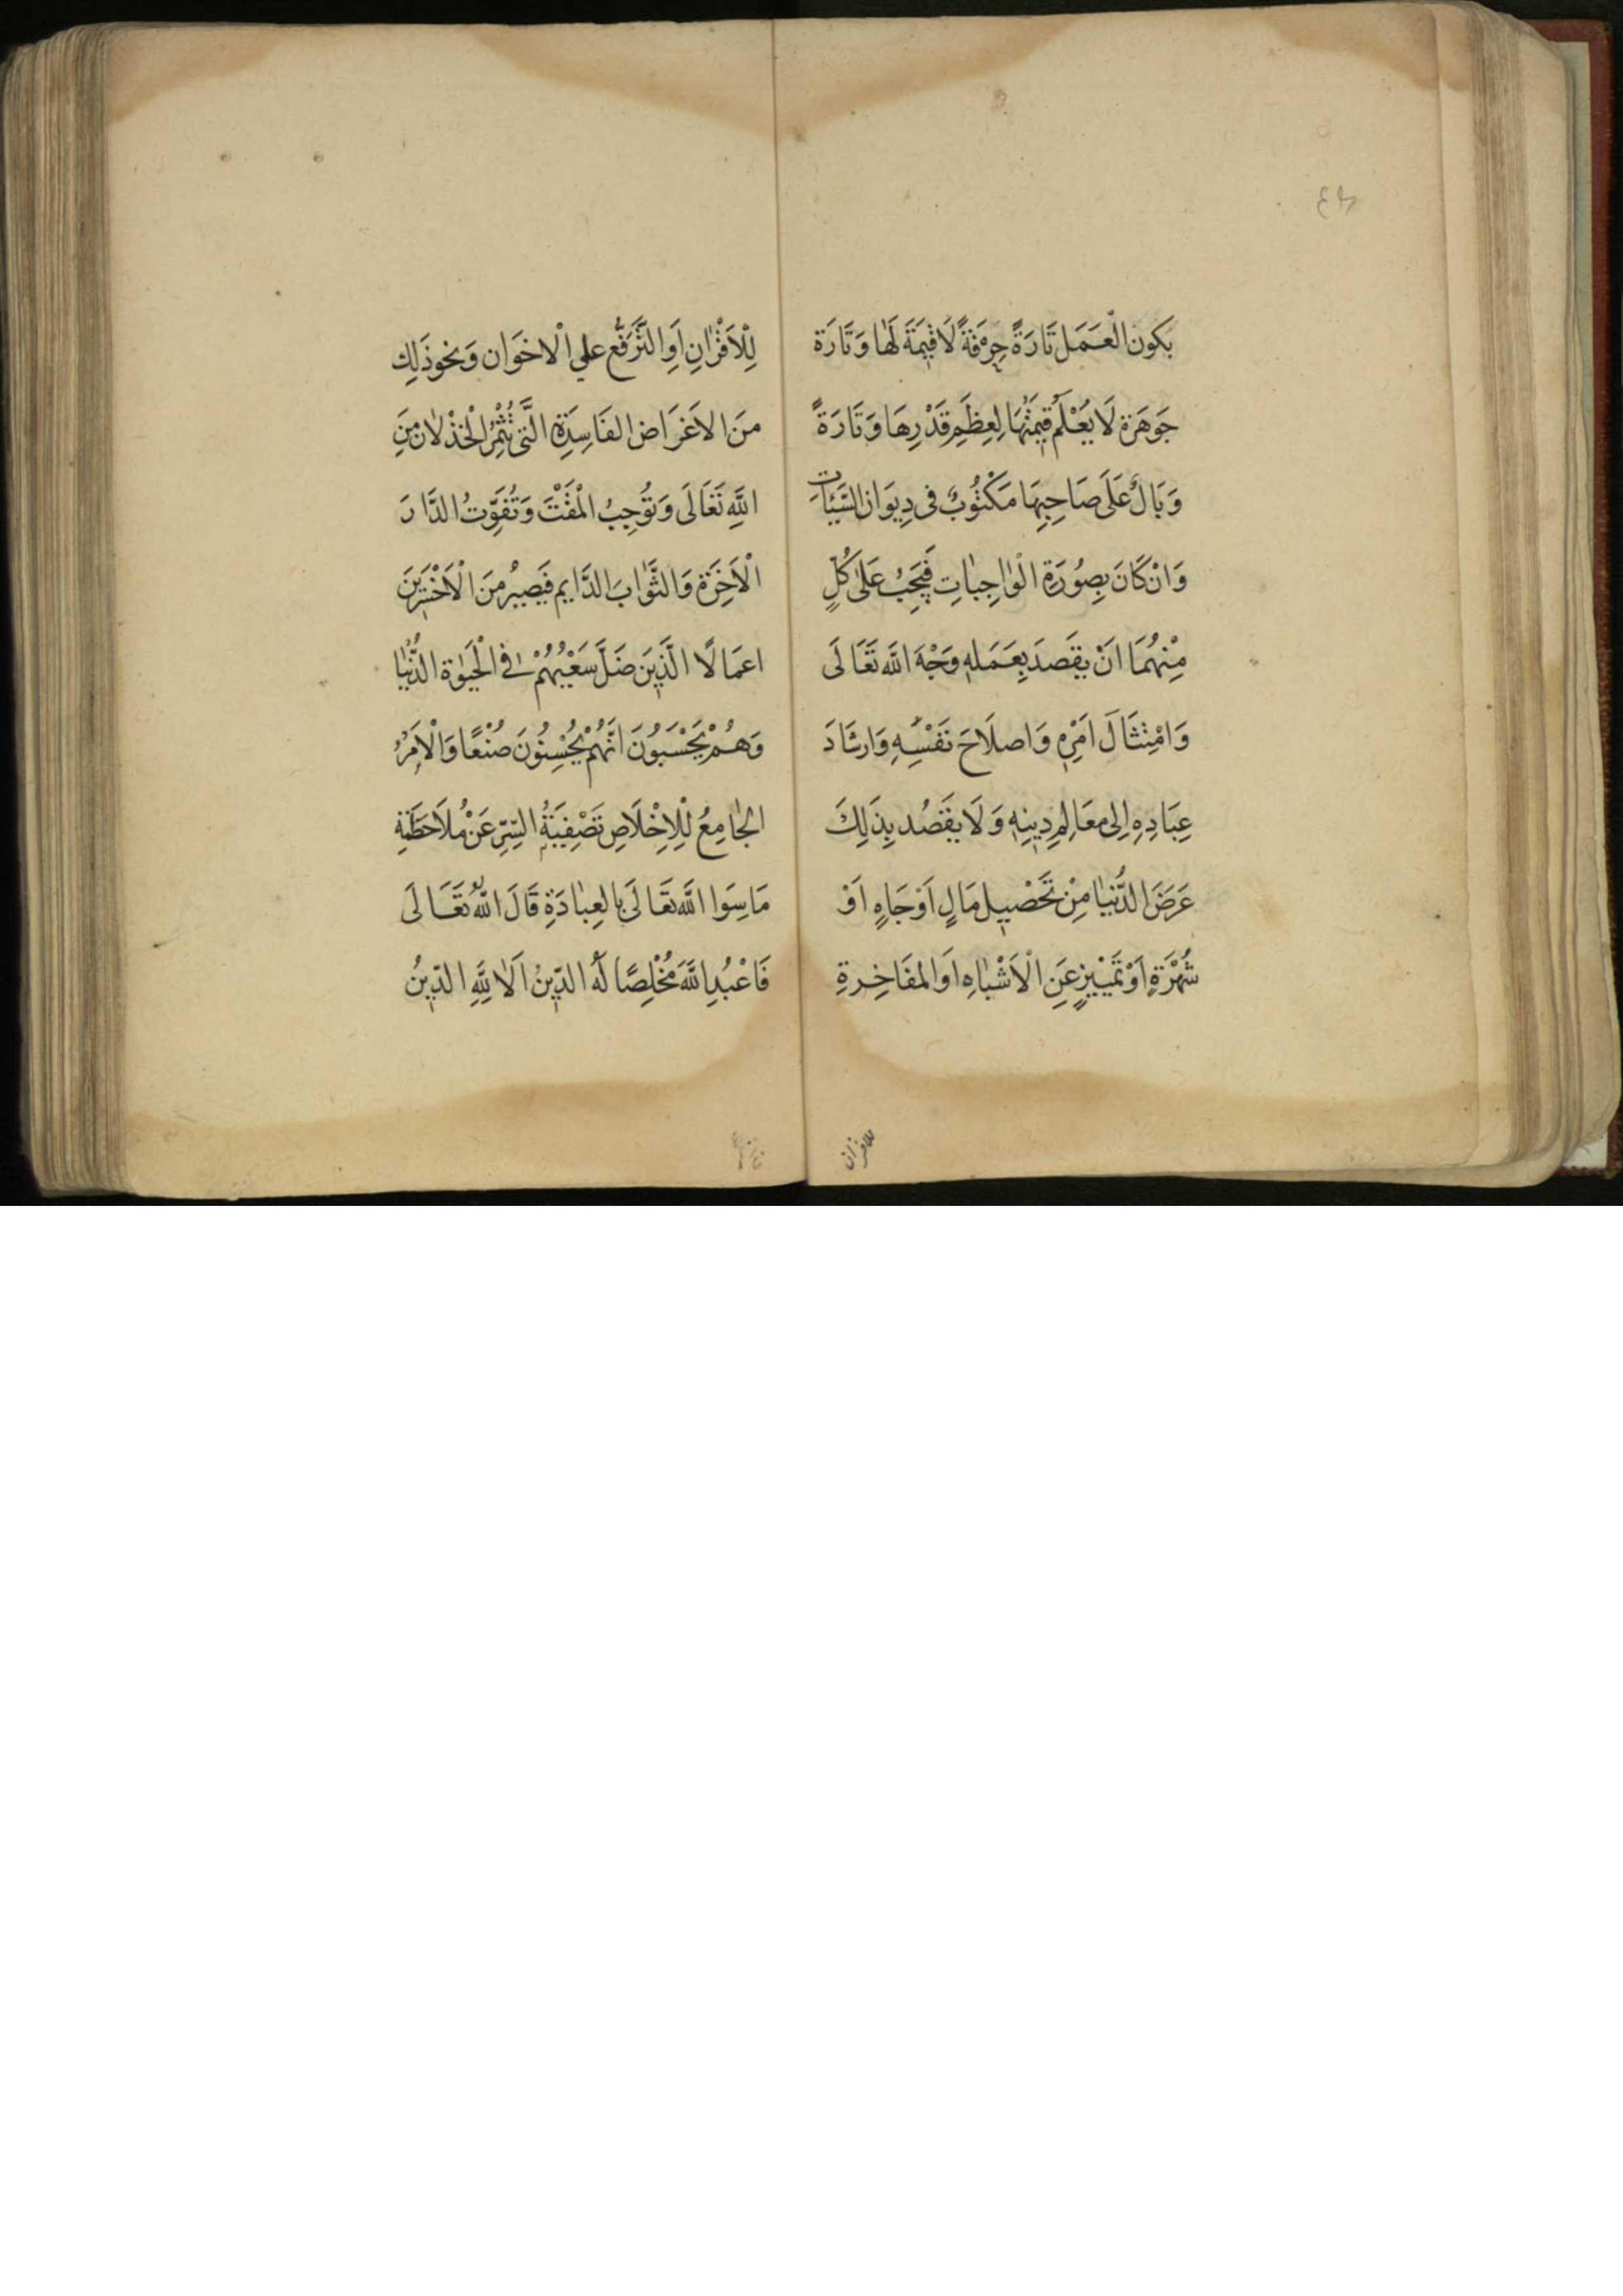 ٤٨
يَكون الْعَمَل تَارَةً حِرْفَةً لَا قِيمَةَ لَهَا وَتَارَة
جَوهَرَة لَا يُعْلَمُ قِيمَتُهَا لِعِظَمِ قَدْرِهَا وَتَارَةً
وَبَالٌ عَلَى صَاحِبِهَا مَكْتُوبٌ فى دِيوَان السَّيِّئَات
وَانْ كَانَ بِصُورَةِ الْوَاجِبَاتِ فَيَجِبُ عَلى كُلٍ
مِنْهُمَا انْ يقَصدَ بِعَمَلِهِ وَجْهَ اللَّه تَعَالَى
وَامْتِثَالَ اَمْرِهِ وَاصلَاحَ نَفْسِهِ وَارشَادَ
عِبَادِهِ اِلى مَعَالِمِ دِينِهِ وَلَا يقَصُد بِذَلِكَ
عَرَضَ الدُّنيَا مِنْ تَحْصِيل مَالٍ اَوْ جَاهٍ اَوْ
شُهْرَةٍ اَوْ تَمْيِيزٍ عَنِ الْاَشْبَاهِ اَوَ المفَاخِرةِ
للاقران
لِلْاَقْرَانِ اَوِ التَّرَفُّع علي الْاخوَان وَنحوذَلِك
منَ الاغرَاض الفَاسِدَةِ الَّتى تُثْمِرُ الْخِذْلَان مِنَ
اللَّهِ تَعَالَى وَتُوجِبُ الْمَقْتَ وَتُفَوِّتُ الدَّارَ
الْاَخِرَة وَالثَّوَابَ الدَّايم فَيَصِيرُ منَ الْاَخْسَرِينَ
اعمَالًا الَّذِينَ ضَلَّ سَعْيُهُمْ فِى الْحَيٰوةِ الدُّنْيَا
وَهُمْ يَحْسَبُونَ انَّهُمْ يُحْسِنُونَ صُنْعًا وَالْاَمْرُ
الْجَامِعُ لْلِاِخْلَاصِ تَصْفِيَةُ السِّرِّ عَنْ مُلَاحَظَةِ
مَاسِوَا اللَّه تعَالَى بِالعِبَادَةِ قَالَ اللَّهُ تعَالَى
فَاعْبُدِ اللَّهَ مُخْلِصًا لَهُ الدِّينُ اَلَا لِلَّهِ الدِّينُ